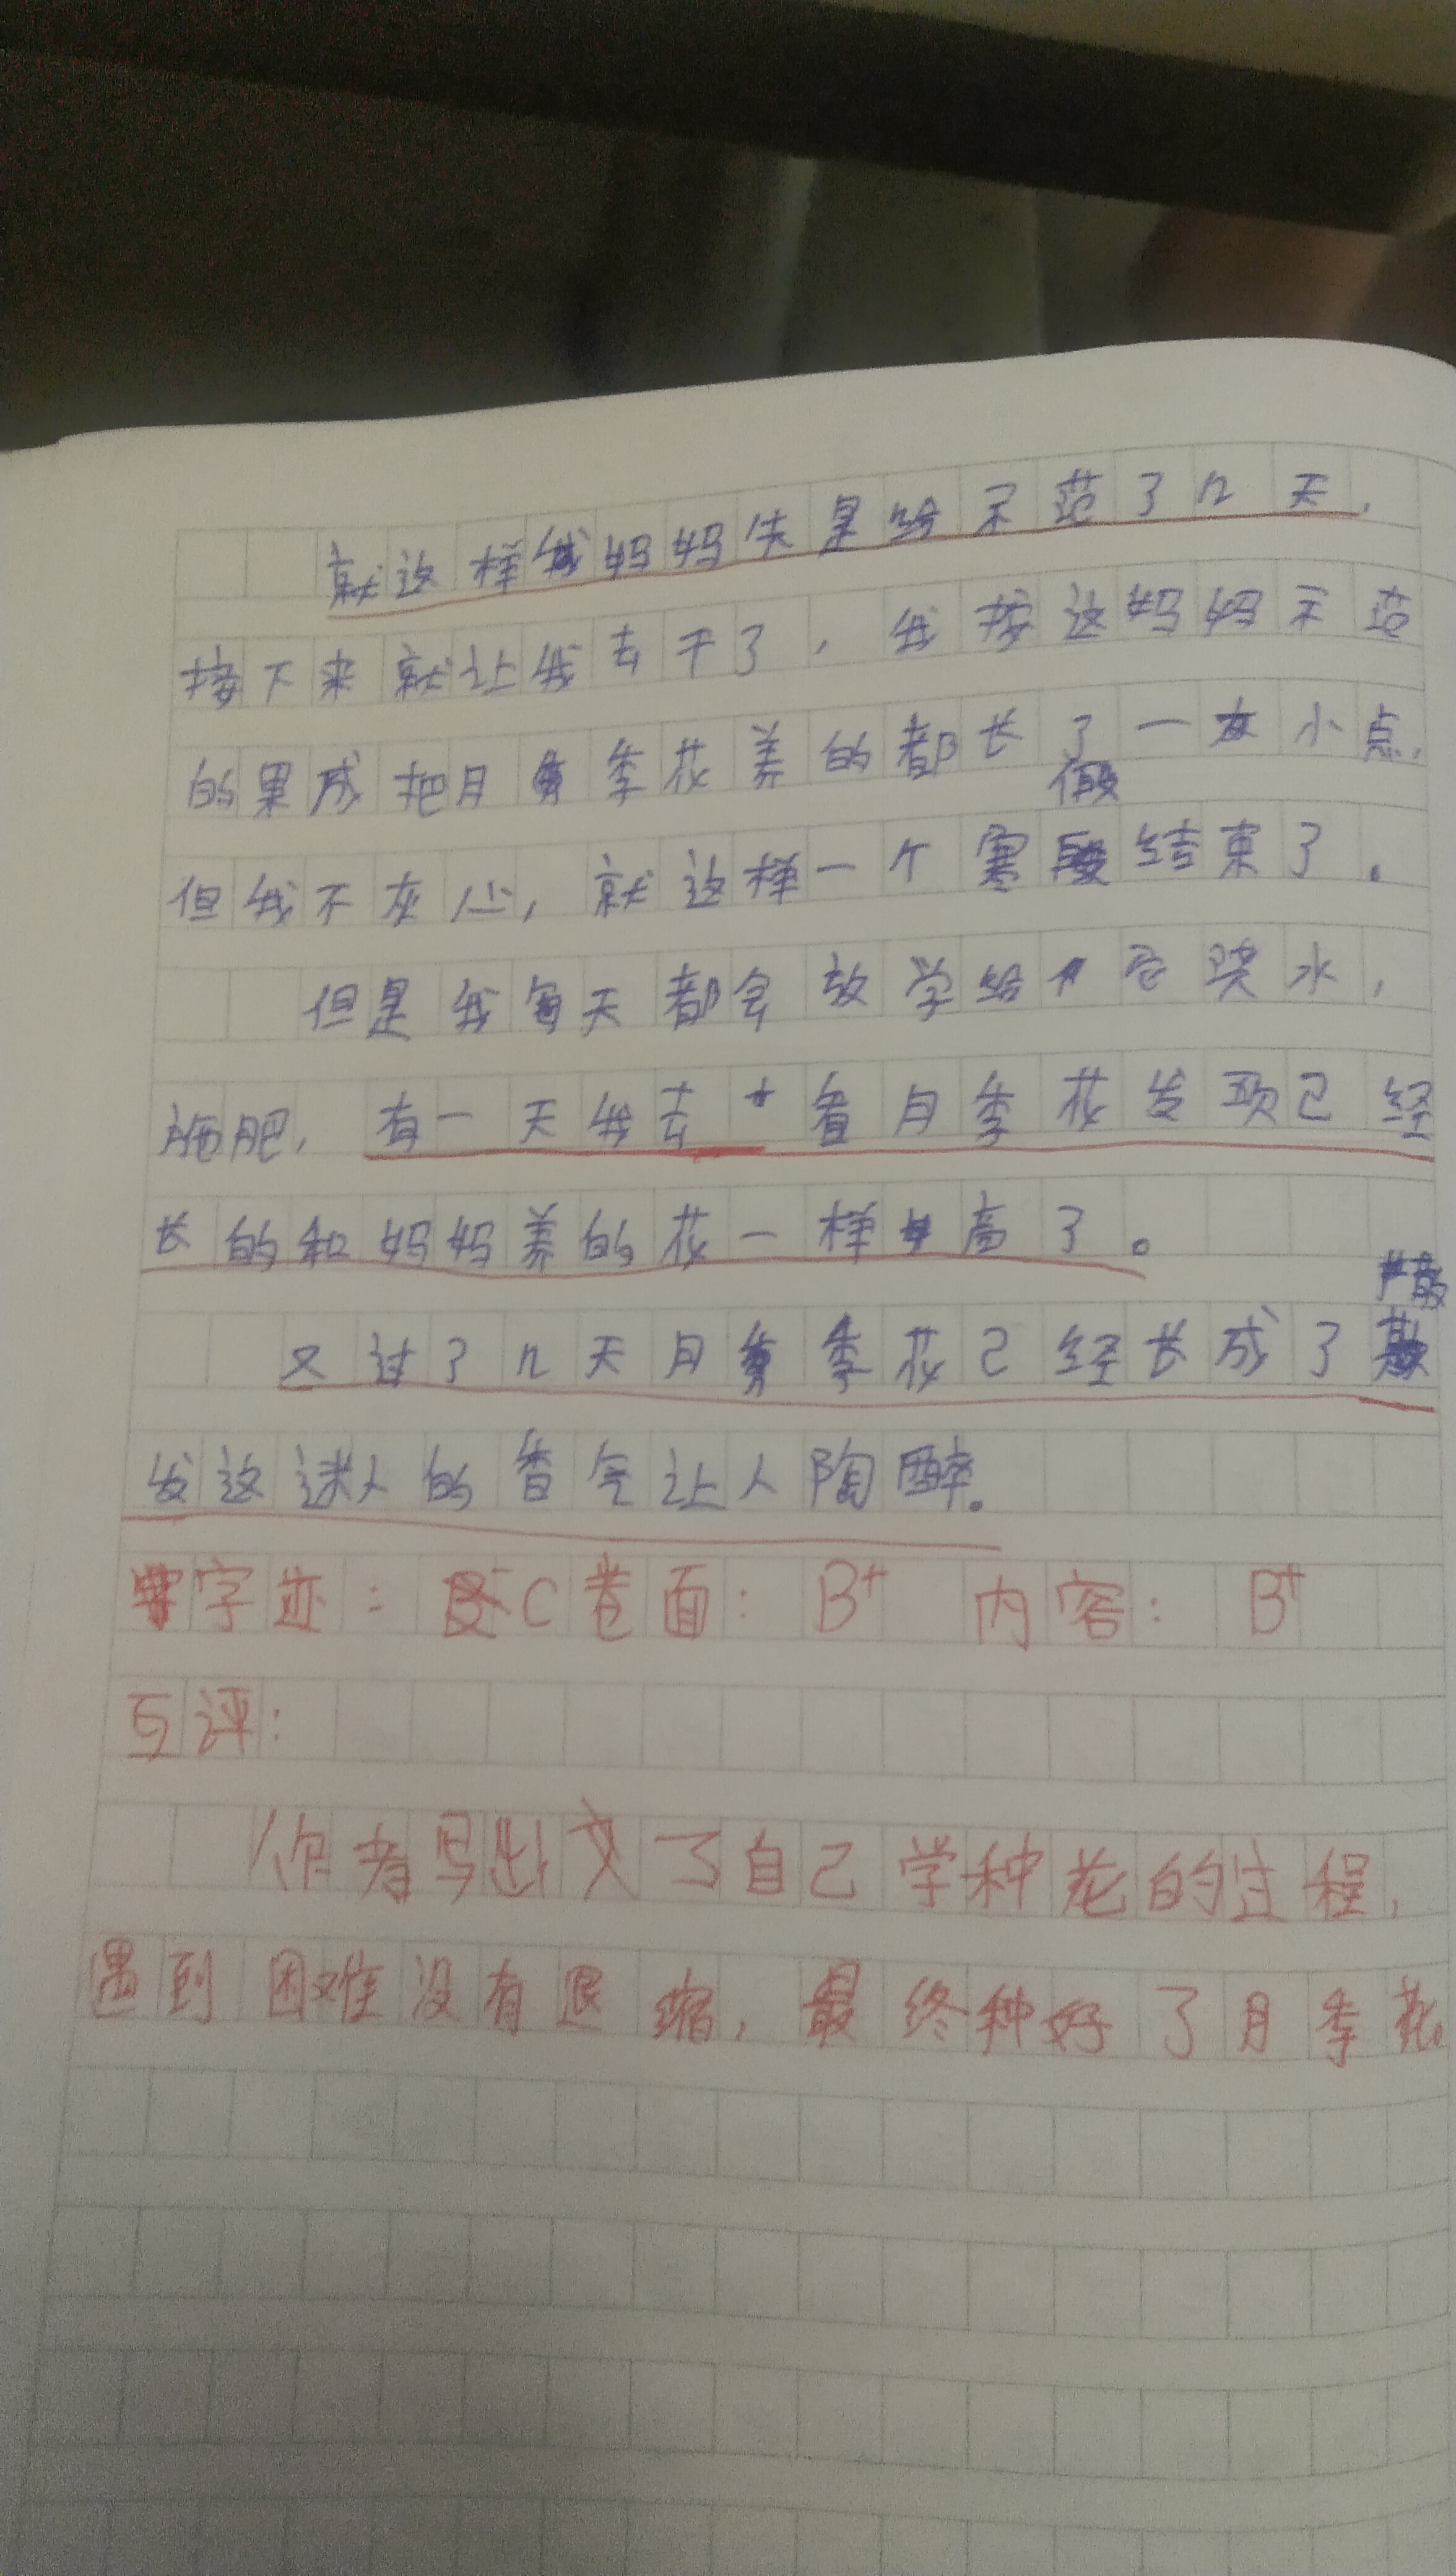 就这样我妈妈先是给示范了几天，
接下来就让我去干了，我按这妈妈示范
的果成把月季花养的都长了一小点，
但我不灰心，就这样一个寒假结束了。
但是我每天都会放学给它浇水，
施肥，有一天我去看月季花发现已经
长的和妈妈养的花一样高了。
又过了几天月季花已经长成了散
发这迷人的香气让人陶醉。
字迹：C卷面：B+ 内容：B+
互评：
作者写出了自己学种花的过程，
遇到困难没有退缩，最终种好了月季花